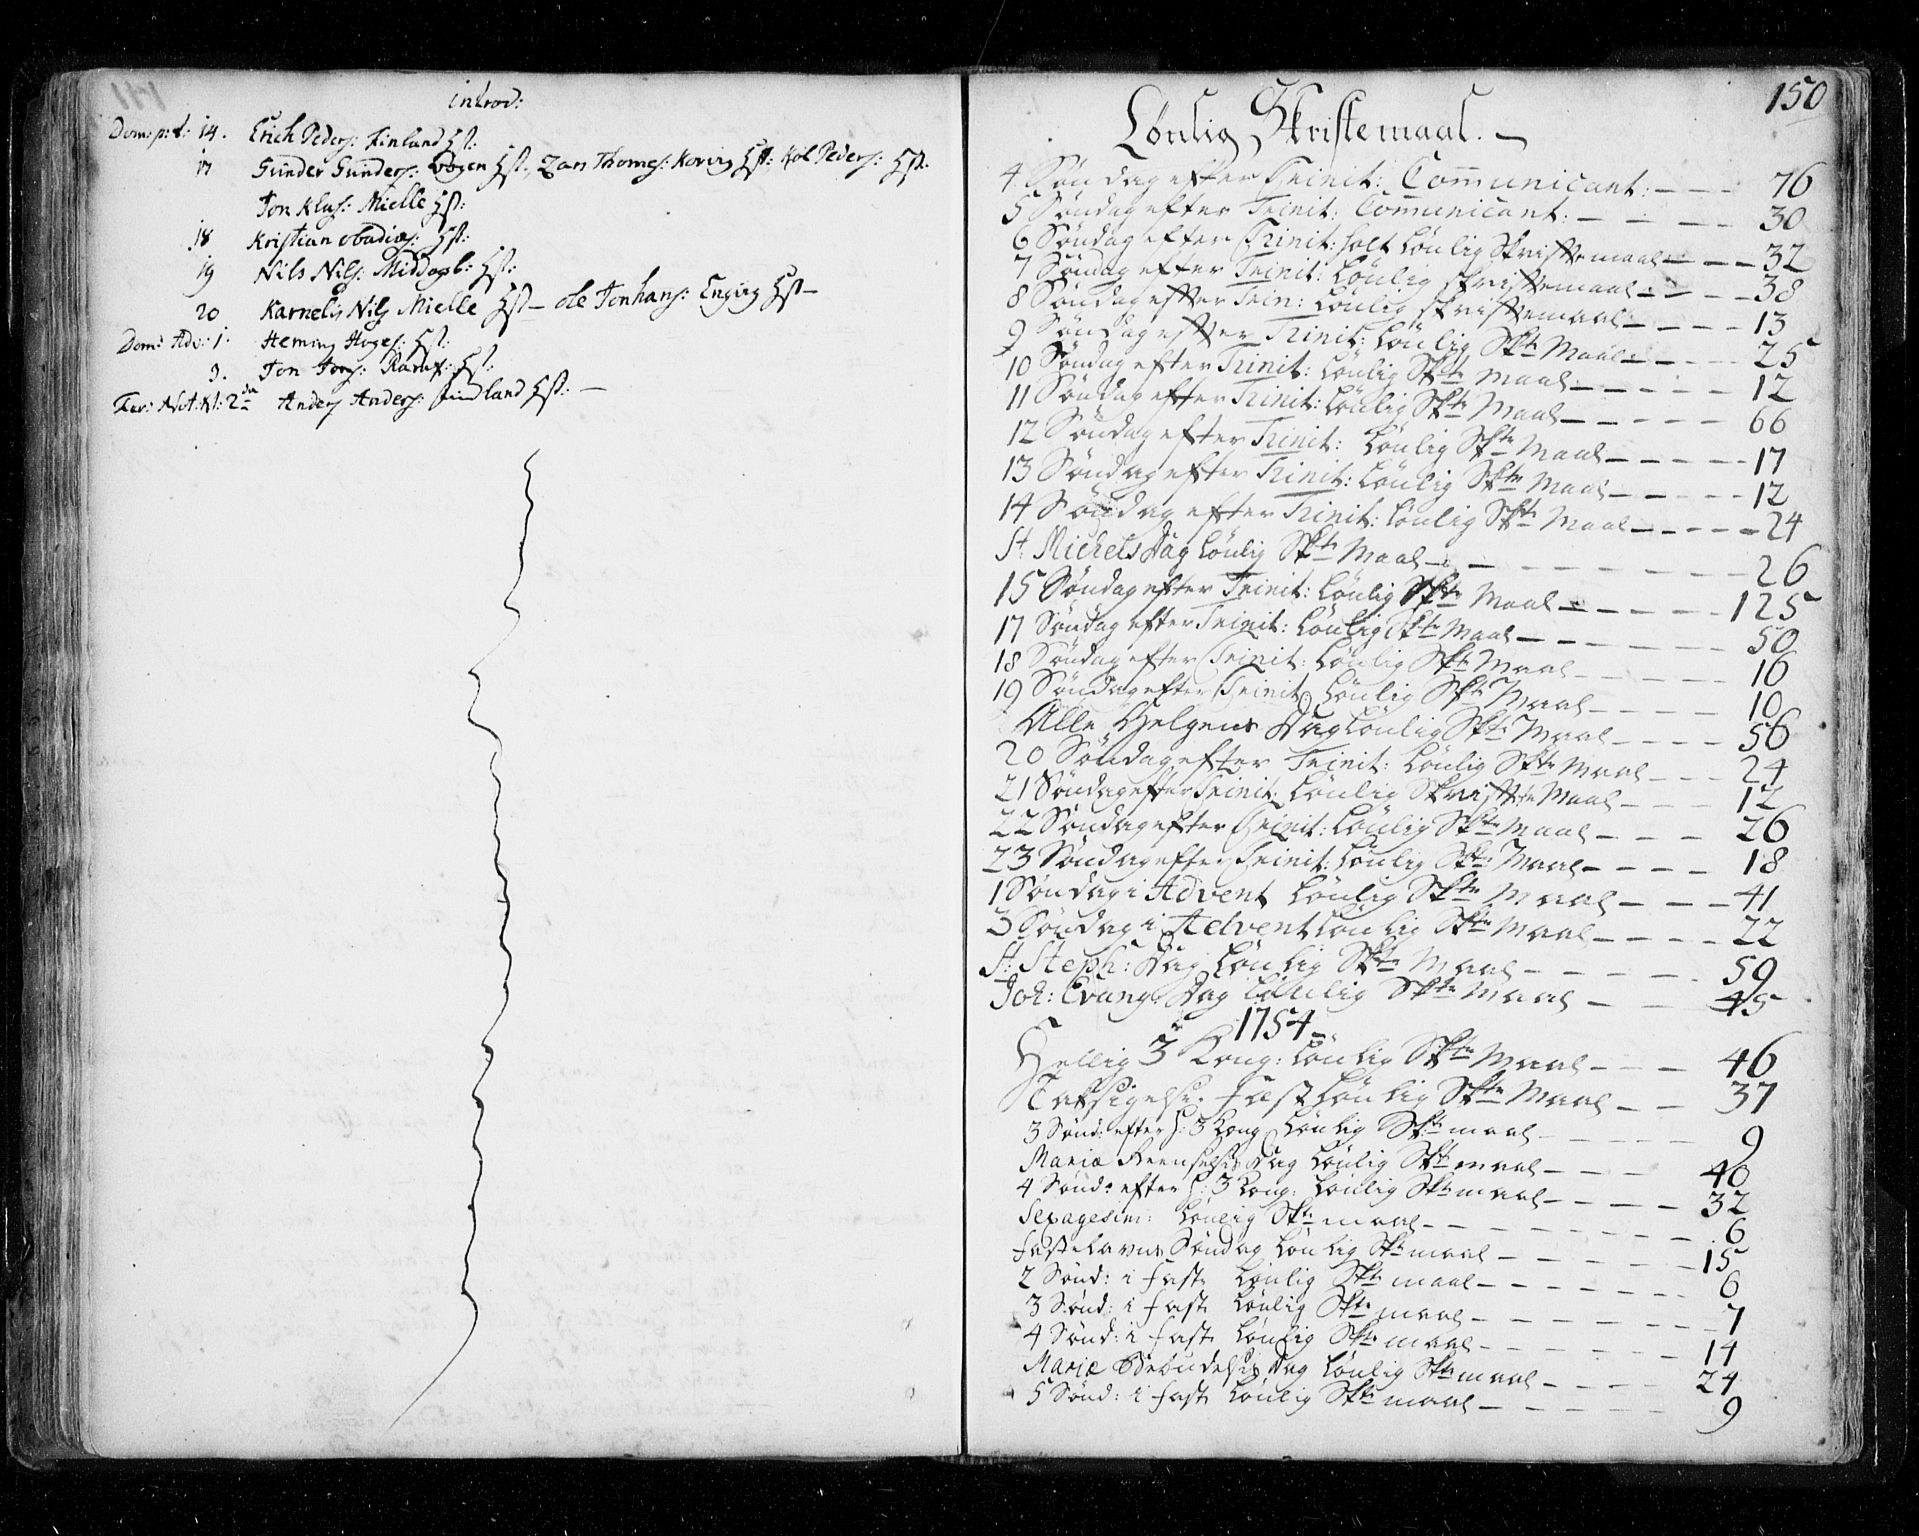 introd:
Dom: p: t: 14. Erich Peders: Finland Hst:
17 Gunder Gunders: Bogen Hst:, Lars Thomes: Koring Hst: Kol Peders: Hst:
Jon Klas: Mielle Hst:
18 Kristian obadies: Hst:
19 Nils Nils: Middagsb: Hst:
20 Karnelis Nils Mielle Hst – ole Jonhans: Enging Hst –
Dom: Adv: 1. Heming Hoges: Hst:
3. Jon Jons: Hst:
Fer: Nat: 2da Anders Anders: Findland Hst: –
150
Lønlig Skriftemaal. –
4 Søndag efter Trinit: Communicant: – – – 76
5 Søndag efter Trinit: Communicant: – – – – 30
6 Søndag efter Trinit: holt Lønlig Skriftemaal – – – 32
7 Søndag efter Trinit: Lønlig skriftemaal – – – – 38
8 Søndag efter Trin: Lønlig skriftemaal – – – – 13
9 Søndag efter Trinit: Lønlig Skte Maal – – – – 25
10 Søndag efter Trinit: Lønlig Skte Maal – – – – – 12
11 Søndag efter Trinit: Lønlig Skte Maal – – – – – 66
12 Søndag efter Trinit: Lønlig Skte Maal – – – – – 17
13 Søndag efter Trinit: Lønlig Skte Maal – – – – – 12
14 Søndag efter Trinit: Lønlig Skte Maal – – – – – 24
St: Michels Dag Lønlig Skte Maal – – – – – – – 26
15 Søndag efter Trinit: Lønlig Skte Maal – – – – – 125
17 Søndag efter Trinit: Lønlig Skte Maal – – – – – 50
18 Søndag efter Trinit: Lønlig Skte Maal – – – – – 16
19 Søndag efter Trinit: Lønlig Skte Maal – – – – 10
Alle Helgens Dag Lønlig Skte Maal – – – – 56
20 Søndag efter Trinit: Lønlig Skte Maal – – – 24
21 Søndag efter Trinit: Lønlig Skrifte Maal – – – 12
22 Søndag efter Trinit: Lønlig Skte Maal – – – 26
23 Søndag efter Trinit: Lønlig Skte Maal – – – – 18
1 Søndag i Advent Lønlig Skte Maal – – – – 41
3 Søndag i Advent Lønlig Skte Maal – – – – 22
St: Steph: Dag Lønlig Skte Maal – – – – – 59
Joh: Evang: Dag Lønlig Skte Maal – – 45
1754 –
Hellig 3 Kong: Lønlig Skte Maal – – – 46
Taksigelse: Fæst Lønlig Skte Maal – – 37
3 Sønd: efter H: 3 Kong Lønlig Skte maal – – – – – 9
Mariæ Reenselsis Dag Lønlig Skte maal – – – – 40
4 Sønd: efter H: 3 Kong: Lønlig Skte maal – – – – – 32
Sexagesim: Lønlig Skte maal – – – – – – – – 6
Fastelavns Søndag Lønlig Skte maal – – – – – – 15
2 Sønd: i Faste Lønlig Skte maal – – – – – – – 6
3 Sønd: i Faste Lønlig Skte maal – – – – – – – 7
4 Sønd: i Faste Lønlig Skte maal – – – – – – 14
Mariæ Bebudelsis Dag Lønlig Skte maal – – – – 24
5 Sønd: i Faste Lønlig Skte maal – – – – – 9